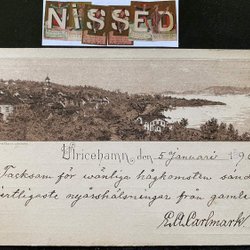 NISSED
Ulricehamn, den 5 Januari 190
Tacksam för wänliga hågkomsten sänd
ertligaste nyårshälsningar från gamle
E. A. Carlmark